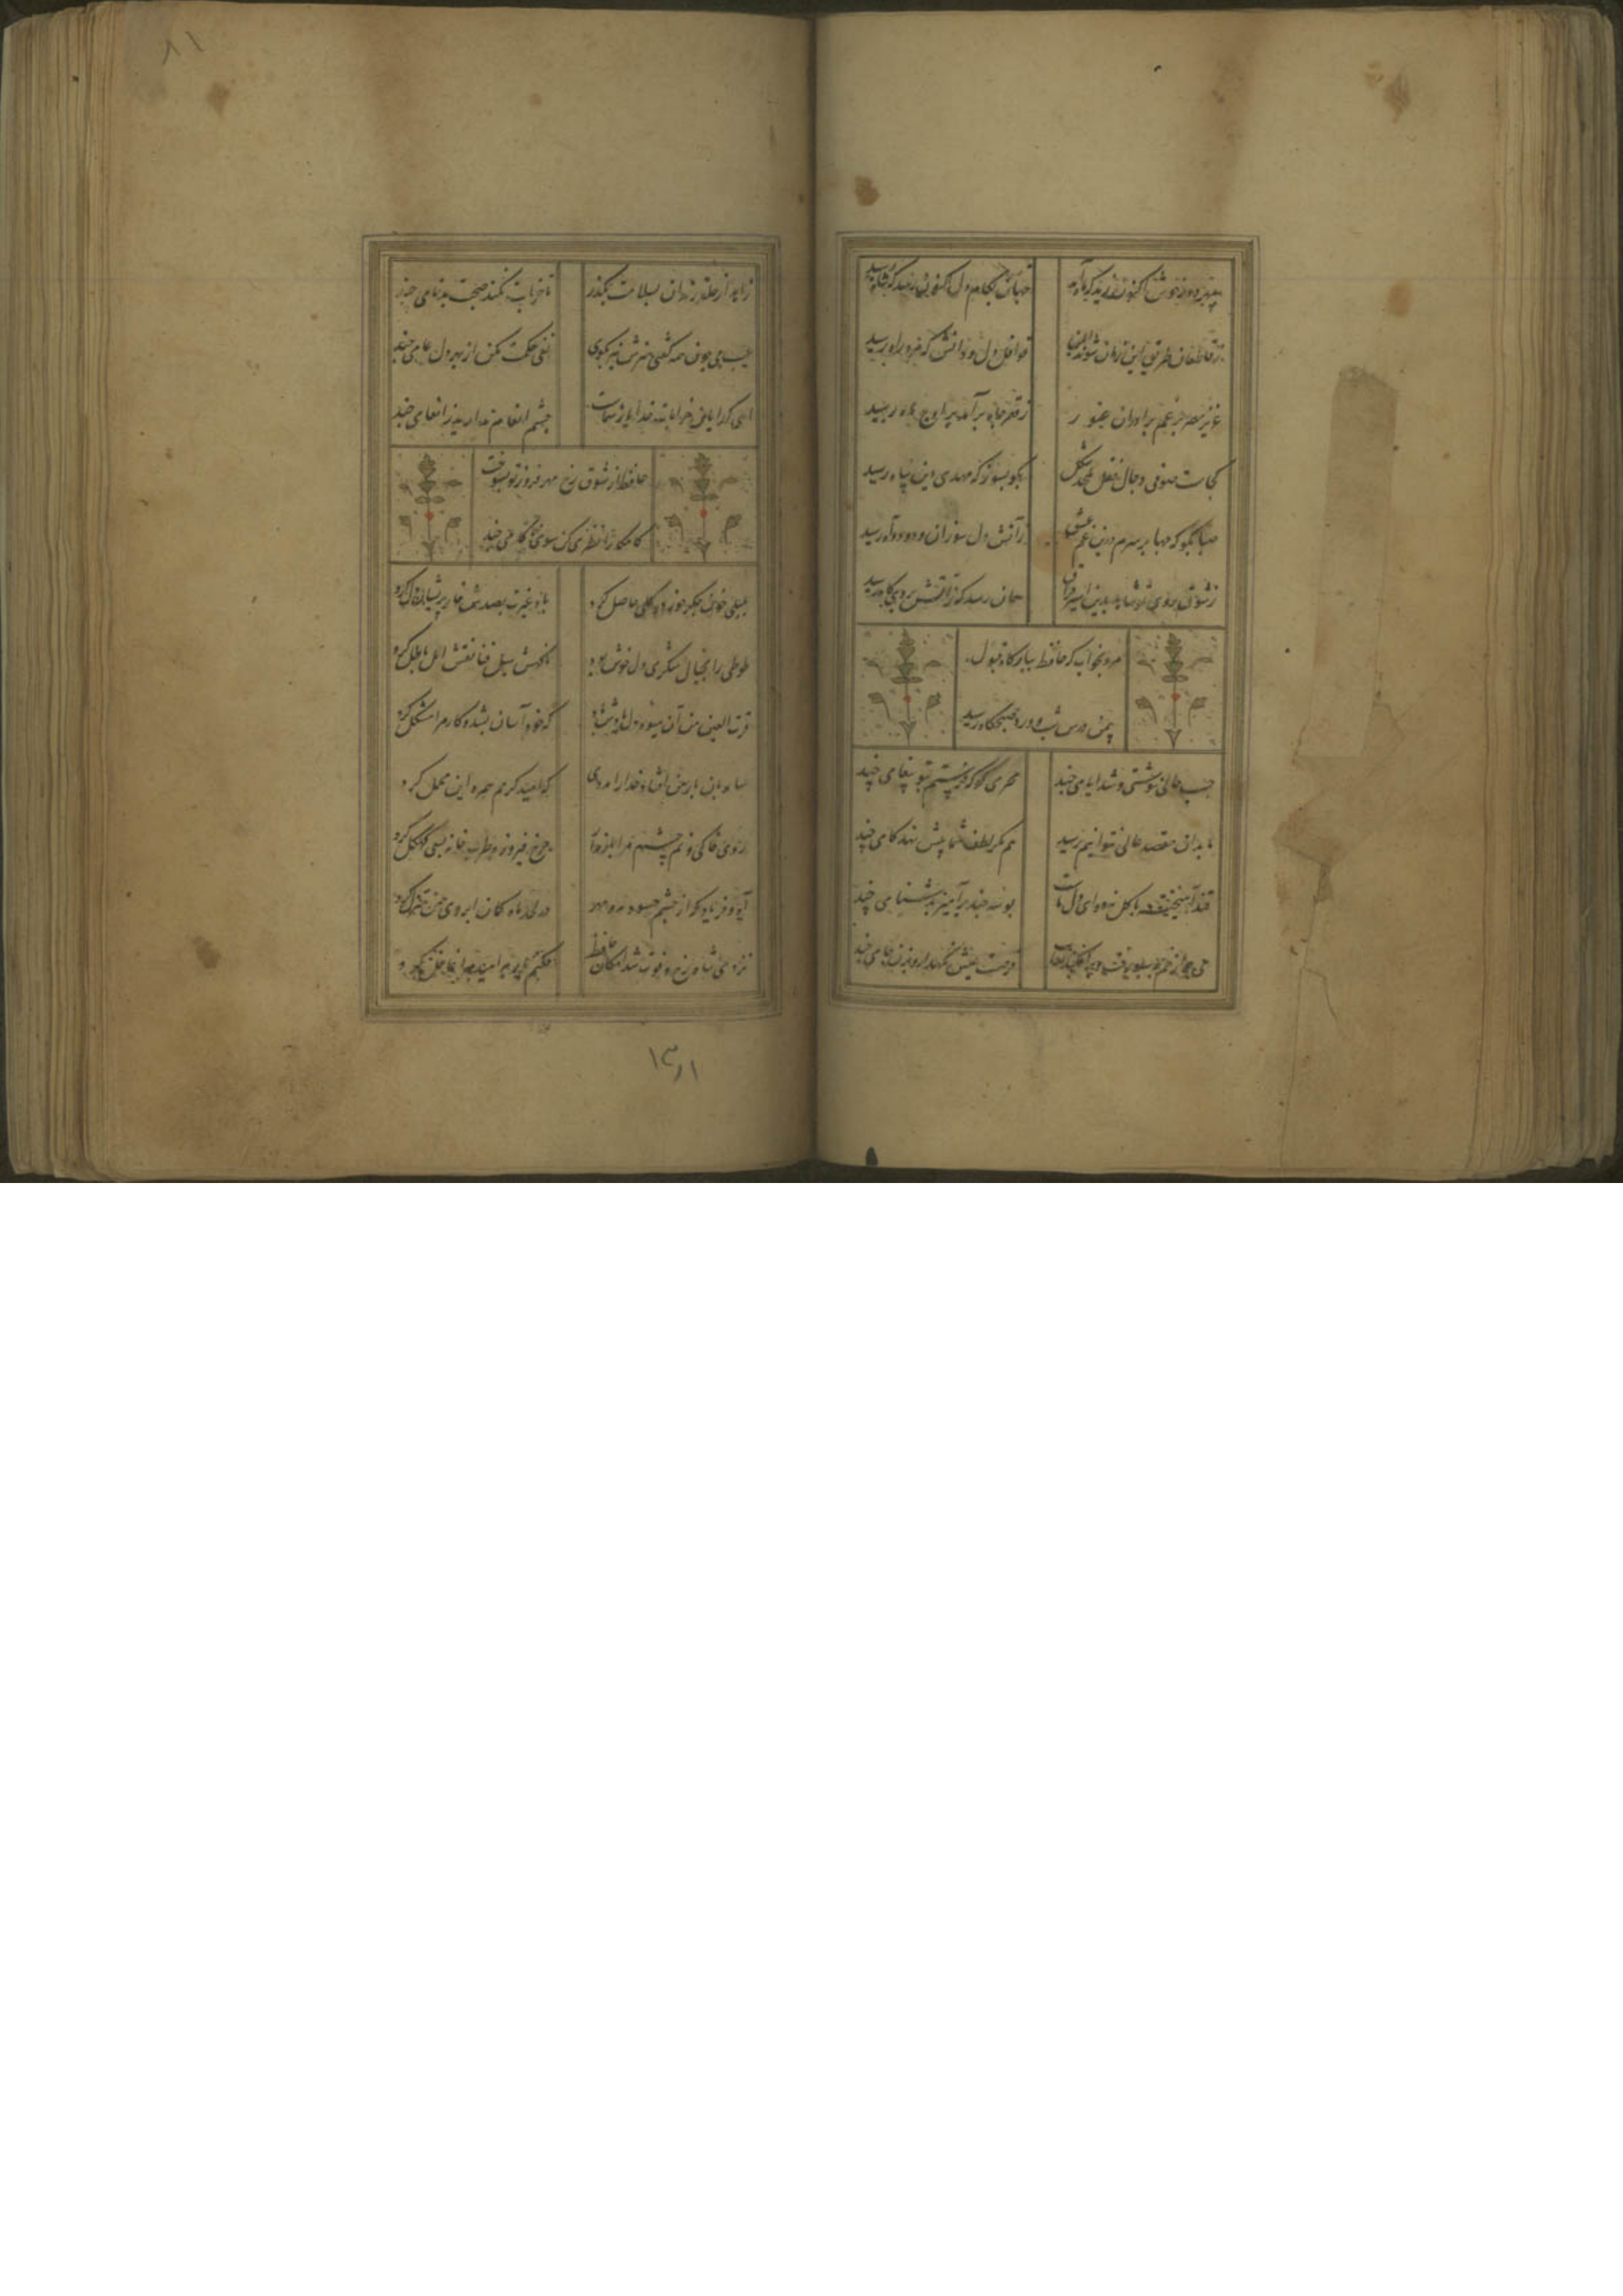 سپهر دور خوش اکنون کند که ماه آمد جهان بکام دل اکنون رسد که شاه رسید
ز قاطعان طریق این زمان شوند ایمن قوافل دل و دانش که مرد راه رسید
عزیز مصر برغم برادران غیور ز قعر چاه برآمد بر اوج ماه رسید
کجاست صوفی دجال فعل ملحد شکل بگو بسوز که مهدی دین پناه رسید
صبا بگو که چها بر سرم درین غم عشق ز آتش دل سوزان و دود آه رسید
ز شوق روی تو شاها بدین اسیر فراق همان رسید کز آتش بروی کاه رسید
مرو بخواب که حافظ ببارگاه قبول
بیمن ورد شب و درس صبحگاه رسید
حسب حالی ننوشتی و شد ایامی چند محرمی کو که فرستم بتو پیغامی چند
ما بدان مقصد عالی نتوانیم رسید هم مگر لطف شما پیش نهد گامی چند
قند آمیخته با گل نه دوای دل ماست بوسه چند برآمیز بدشنامی چند
می چو از خم بسبو رفت و گل افکند نقاب فرصت عیش نگهدار و بزن جامی چند
۸۱
زاهد از حلقه رندان بسلامت بگذر تا خرابت نکند صحبت بدنامی چند
عیب می چون همه گفتی هنرش نیز بگوی نفی حکمت مکن از بهر دل عامی چند
ای گدایان خرابات خدا یار شماست چشم انعام مدارید ز انعامی چند
حافظ از شوق رخ مهر فروز تو بسوخت
کامگارا نظری کن سوی ناکامی چند
بلبلی خون جگر خورد و گلی حاصل کرد باد غیرت بصدش خار پریشان دل کرد
طوطی را بخیال شکری دل خوش بود ناگهش سیل فنا نقش امل باطل کرد
قرت العین من آن میوه دل یادش باد که خود آسان بشد و کار مرا مشکل کرد
ساروان بار من افتاد خدا را مددی که امید کرمم همره این محمل کرد
روی خاکی و نم چشم مرا خوار مدار چرخ فیروزه طربخانه ازین کهگل کرد
آه و فریاد که از چشم حسود مه و مهر در لحد ماه کمان ابروی من منزل کرد
نزدی شاه رخ و فوت شد امکان حافظ
۱۳۱